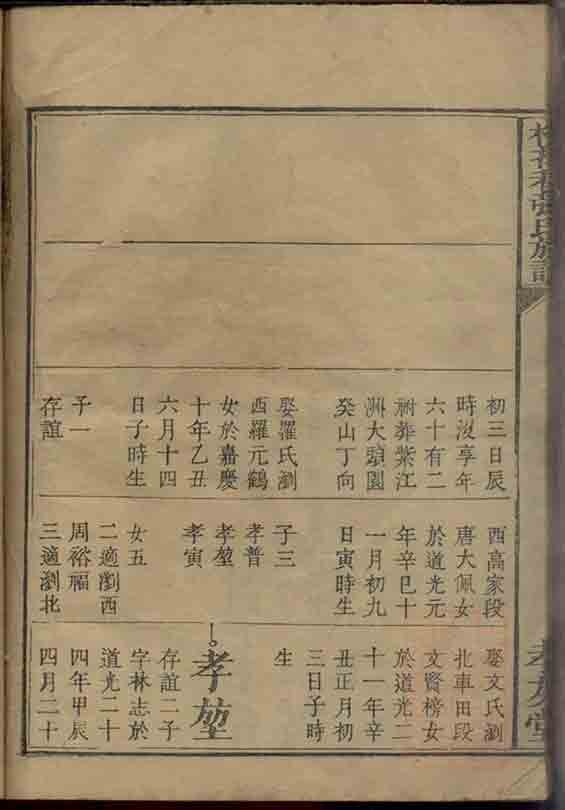 氏族譜
孝友堂
初三日辰
時沒享年
六十有二
祔葬紫江
洲大頭園
癸山丁向
娶羅氏瀏
西羅元鶴
女於嘉慶
十年乙丑
六月十四
日子時生
子一
存誼
西高家段
唐大佩女
於道光元
年辛巳十
一月初九
日寅時生
子三
孝普
孝堃
孝寅
女五
二適瀏西
周裕福
三適瀏北
娶文氏瀏
北車田段
文賢榜女
於道光二
十一年辛
丑正月初
三日子時
生
孝堃
存誼二子
字林志於
道光二十
四年甲辰
四月二十